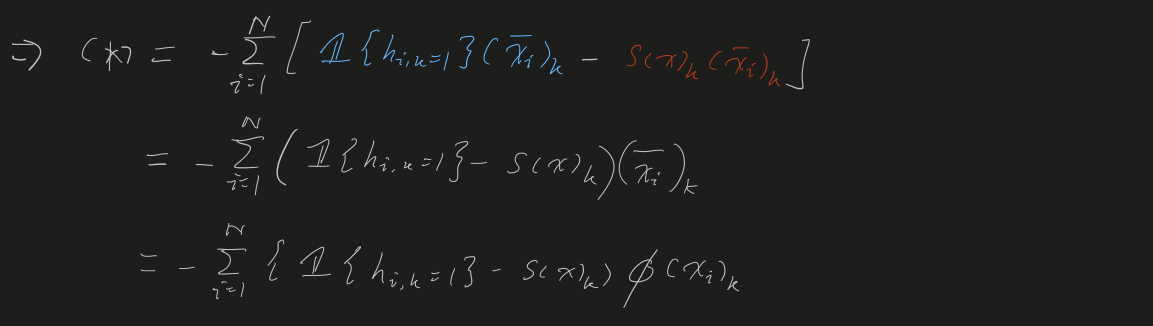 ⇒ (*) = - ∑_{i=1}^{N} [ 𝟙{h_{i,k=1}}(x̄_i)_k - S(x)_k (x̄_i)_k ]
= - ∑_{i=1}^{N} ( 𝟙{h_{i,k=1}} - S(x)_k )(x̄_i)_k
= - ∑_{i=1}^{N} { 𝟙{h_{i,k=1}} - S(x)_k ) ϕ(x_i)_k